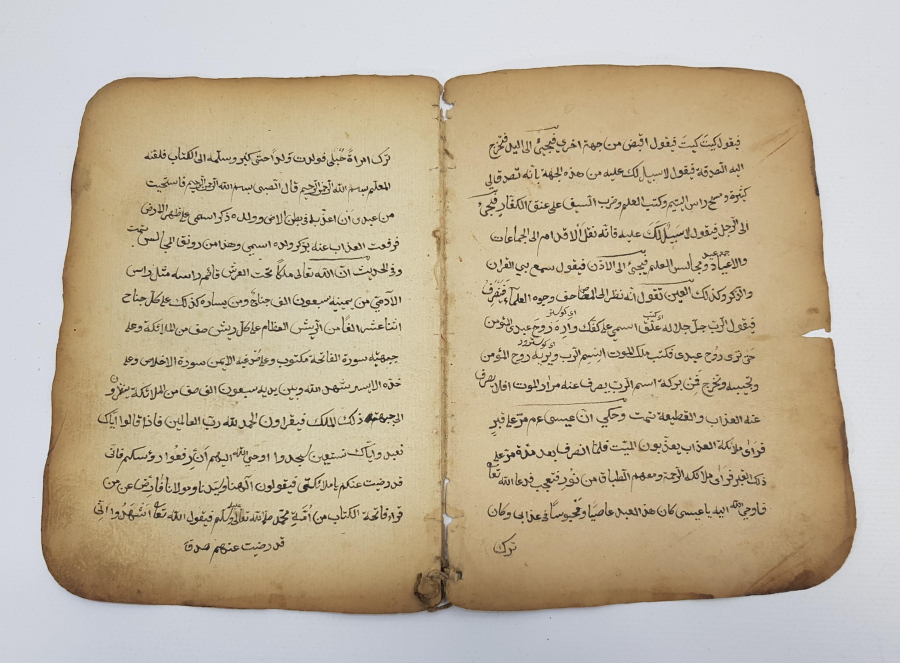 فيقول كيت كيت فيقول اقبض من جهة اخري فيجئ الى اليد فتخرج
اليه الصدقة فيقول لا سبيل لك عليه من هذه الجهة بانه تصدق لي
كثيرة ومسح راس اليتيم وكتب العلم وضرب السيف على عنق الكفار فيجئ
الى الرجل فيقول لا سبيل لك عليه فانه نقل الاقدام الى الجماعات
والاعياد ومجالس العلم فيجئ الى الاذن فيقول سمع بي القران
والذكر وكذلك العين تقول انه نظر الى المصاحف ووجوه العلماء
فيقول الرب جل جلاله علق اسمي على كفك واره روح عبدي المؤمن
حتى ترى روح عبدي فكتب ملك الموت اسم الرب ويريه روح المؤمن
وتجيبه وتخرج فمن بركة اسم الرب يصرف عنه مرار الموت افلا يصرف
عنه العذاب والقطيعة تمت وحكي ان عيسى عم مر على قبر
فراى ملائكة العذاب يعذبون الميت فلما انصرف بعد مر على
ذلك القبر فراى ملائكة الرحمة ومعهم اطباق من نور فتعجب فدعا الله تعا
فاوحى الله اليه يا عيسى كان هذا العبد عاصيا ومحبوسا في عذابي وكان
ترك
ترك امراة حبلى فولدت ولدا حتى كبر وسلمه الى الكتاب فلقنه
المعلم بسم الله الرحمن الرحيم قال الصبي بسم الله الرحمن الرحيم فاستحيت
من عبدي ان اعذبه في بطن الارض وولده ذكر اسمي على ظهر الارض
فرفعت العذاب عنه بذكر ولده اسمي وهذا من رونق المجالس تمت
وفي الحديث ان الله تعالى ملكا تحت العرش قائم راسه مثل راس
الادمي من يمينه سبعون الف جناح ومن يساره كذلك على كل جناح
اثنا عشر الفا من الريش العظام على كل ريش صف من الملائكة وعلى
جبهته سورة الفاتحة مكتوب وعلى خده الايمن سورة الاخلاص وعلى
خده الايسر شهد الله وبين يديه سبعون الف صف من الملائكة ينظرون
الى جبهة ذلك الملك فيقراون الحمد لله رب العالمين فاذا قالوا اياك
نعبد واياك نستعين سجدوا اوحى الله اليهم ان رفعوا رؤسكم فاني
قد رضيت عنكم يا ملائكتي فيقولون الهنا وسيدنا ومولانا فارض عن من
قراء فاتحة الكتاب من امة محمد صلى الله تعالى عليه وسلم فيقول الله تعا اشهدوا اني
قد رضيت عنهم صدق